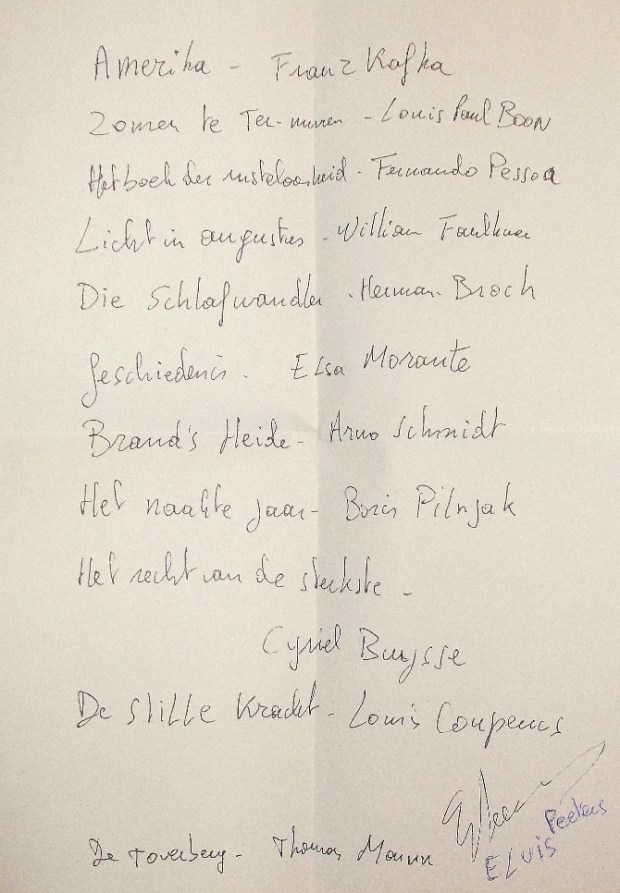 Amerika - Franz Kafka
Zomer te Ter-muren - Louis Paul Boon
Het boek der rusteloosheid - Fernando Pessoa
Licht in augustus - William Faulkner
Die Schlafwandler - Herman Broch
Geschiedenis. Elsa Morante
Brand's Heide - Arno Schmidt
Het naakte jaar - Boris Pilnjak
Het recht van de sterkste -
Cyriel Buysse
De Stille Kracht - Louis Couperus
De toverberg - Thomas Mann
Elvis Peeters